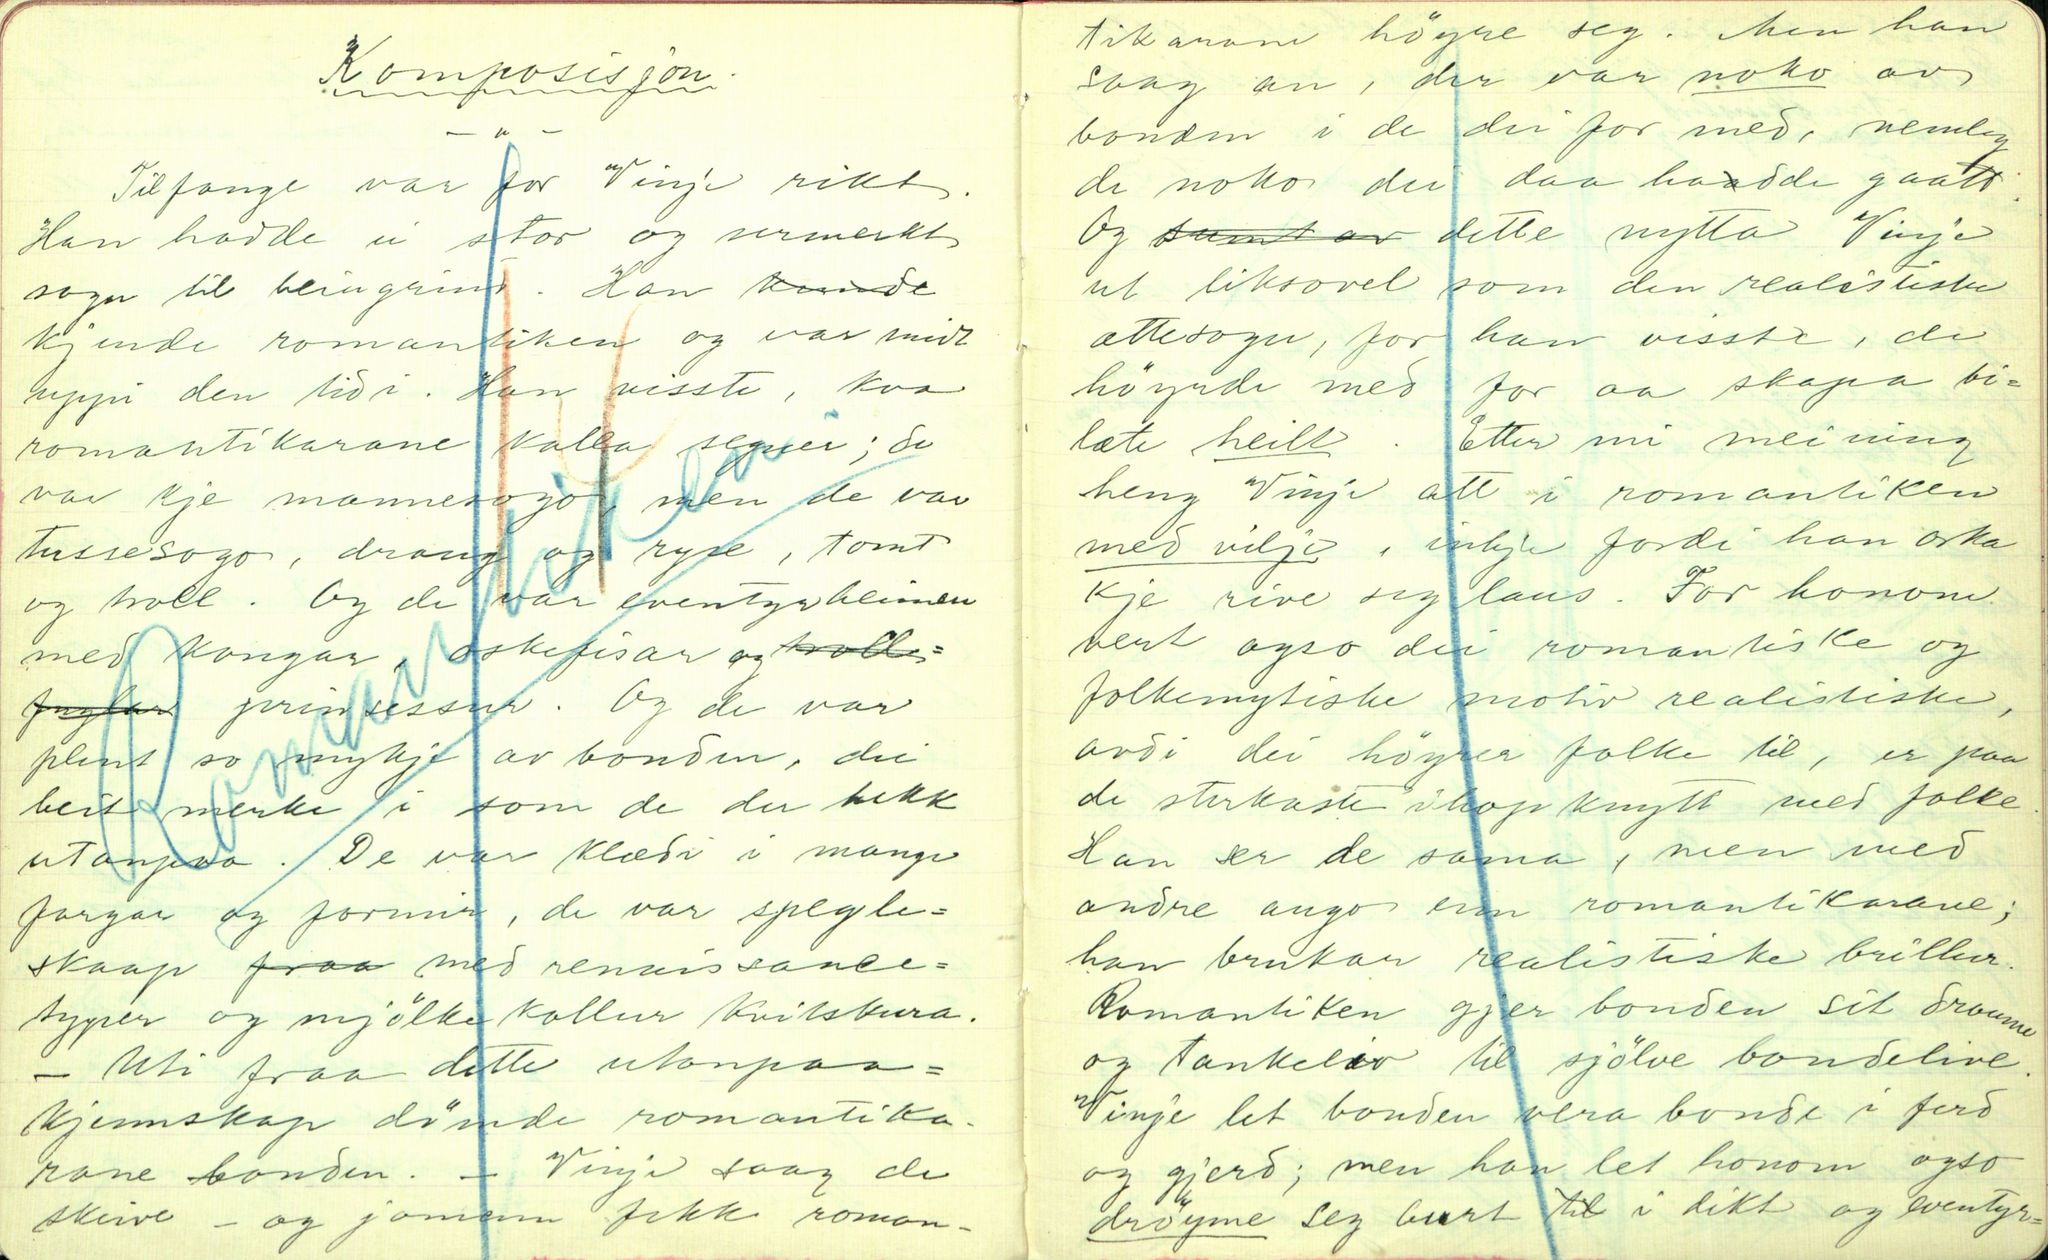 Komposisjon.
— " —
Tilfange var for Vinje rikt.
Han hadde ei stor og sermerkt
sogu til beingrind. Han kunde
kjende romantiken og var midt
uppi den tidi. Han visste, kva
romantikarane kalla segner; de
var kje mannesogo, men de var
tussesogo, draug og ryse, tomt
og troll. Og de var eventyrheimen
med kongar, oskefisar og trolle=
fuglar prinsessur. Og de var
plent so mykje av bonden, dei
beit merke i som de der hekk
utanpaa. De var klædi i mange
fargar og formir, de var spegle=
skaap fraa med renaissance=
typer og mjölkekollur kvitskura.
— Uti fraa dette utanpaa=
kjennskap dömde romantika-
rane bonden. — Vinje saag de
skeive — og jamenn fekk roman-
Romantiken
tikarane höyre seg. Men han
saag an, der var noko av
bonden i de dei for med, nemleg
de noko dei daa hadde gaatt.
Og samt av dette nytta Vinje
ut liksovel som den realistiske
ættesogu, for han visste, de
höyrde med for aa skapa bi=
læte heilt. Etter mi meining
heng Vinje att i romantiken
med vilje, inkje fordi han orka
kje rive seg laus. For honom
vert ogso dei romantiske og
folkemytiske motiv realistiske,
avdi dei höyrer folke til, er paa
de sterkaste ihopknytt med folke.
Han ser de sama, men med
andre augo enn romantikarane;
han brukar realistiske brillur.
Romantiken gjer bonden sit draume
og tankeliv til sjölve bondelive.
Vinje let bonden vera bonde i ferd
og gjerd; men han let honom ogso
dröyme seg burt til i dikt og eventyr=